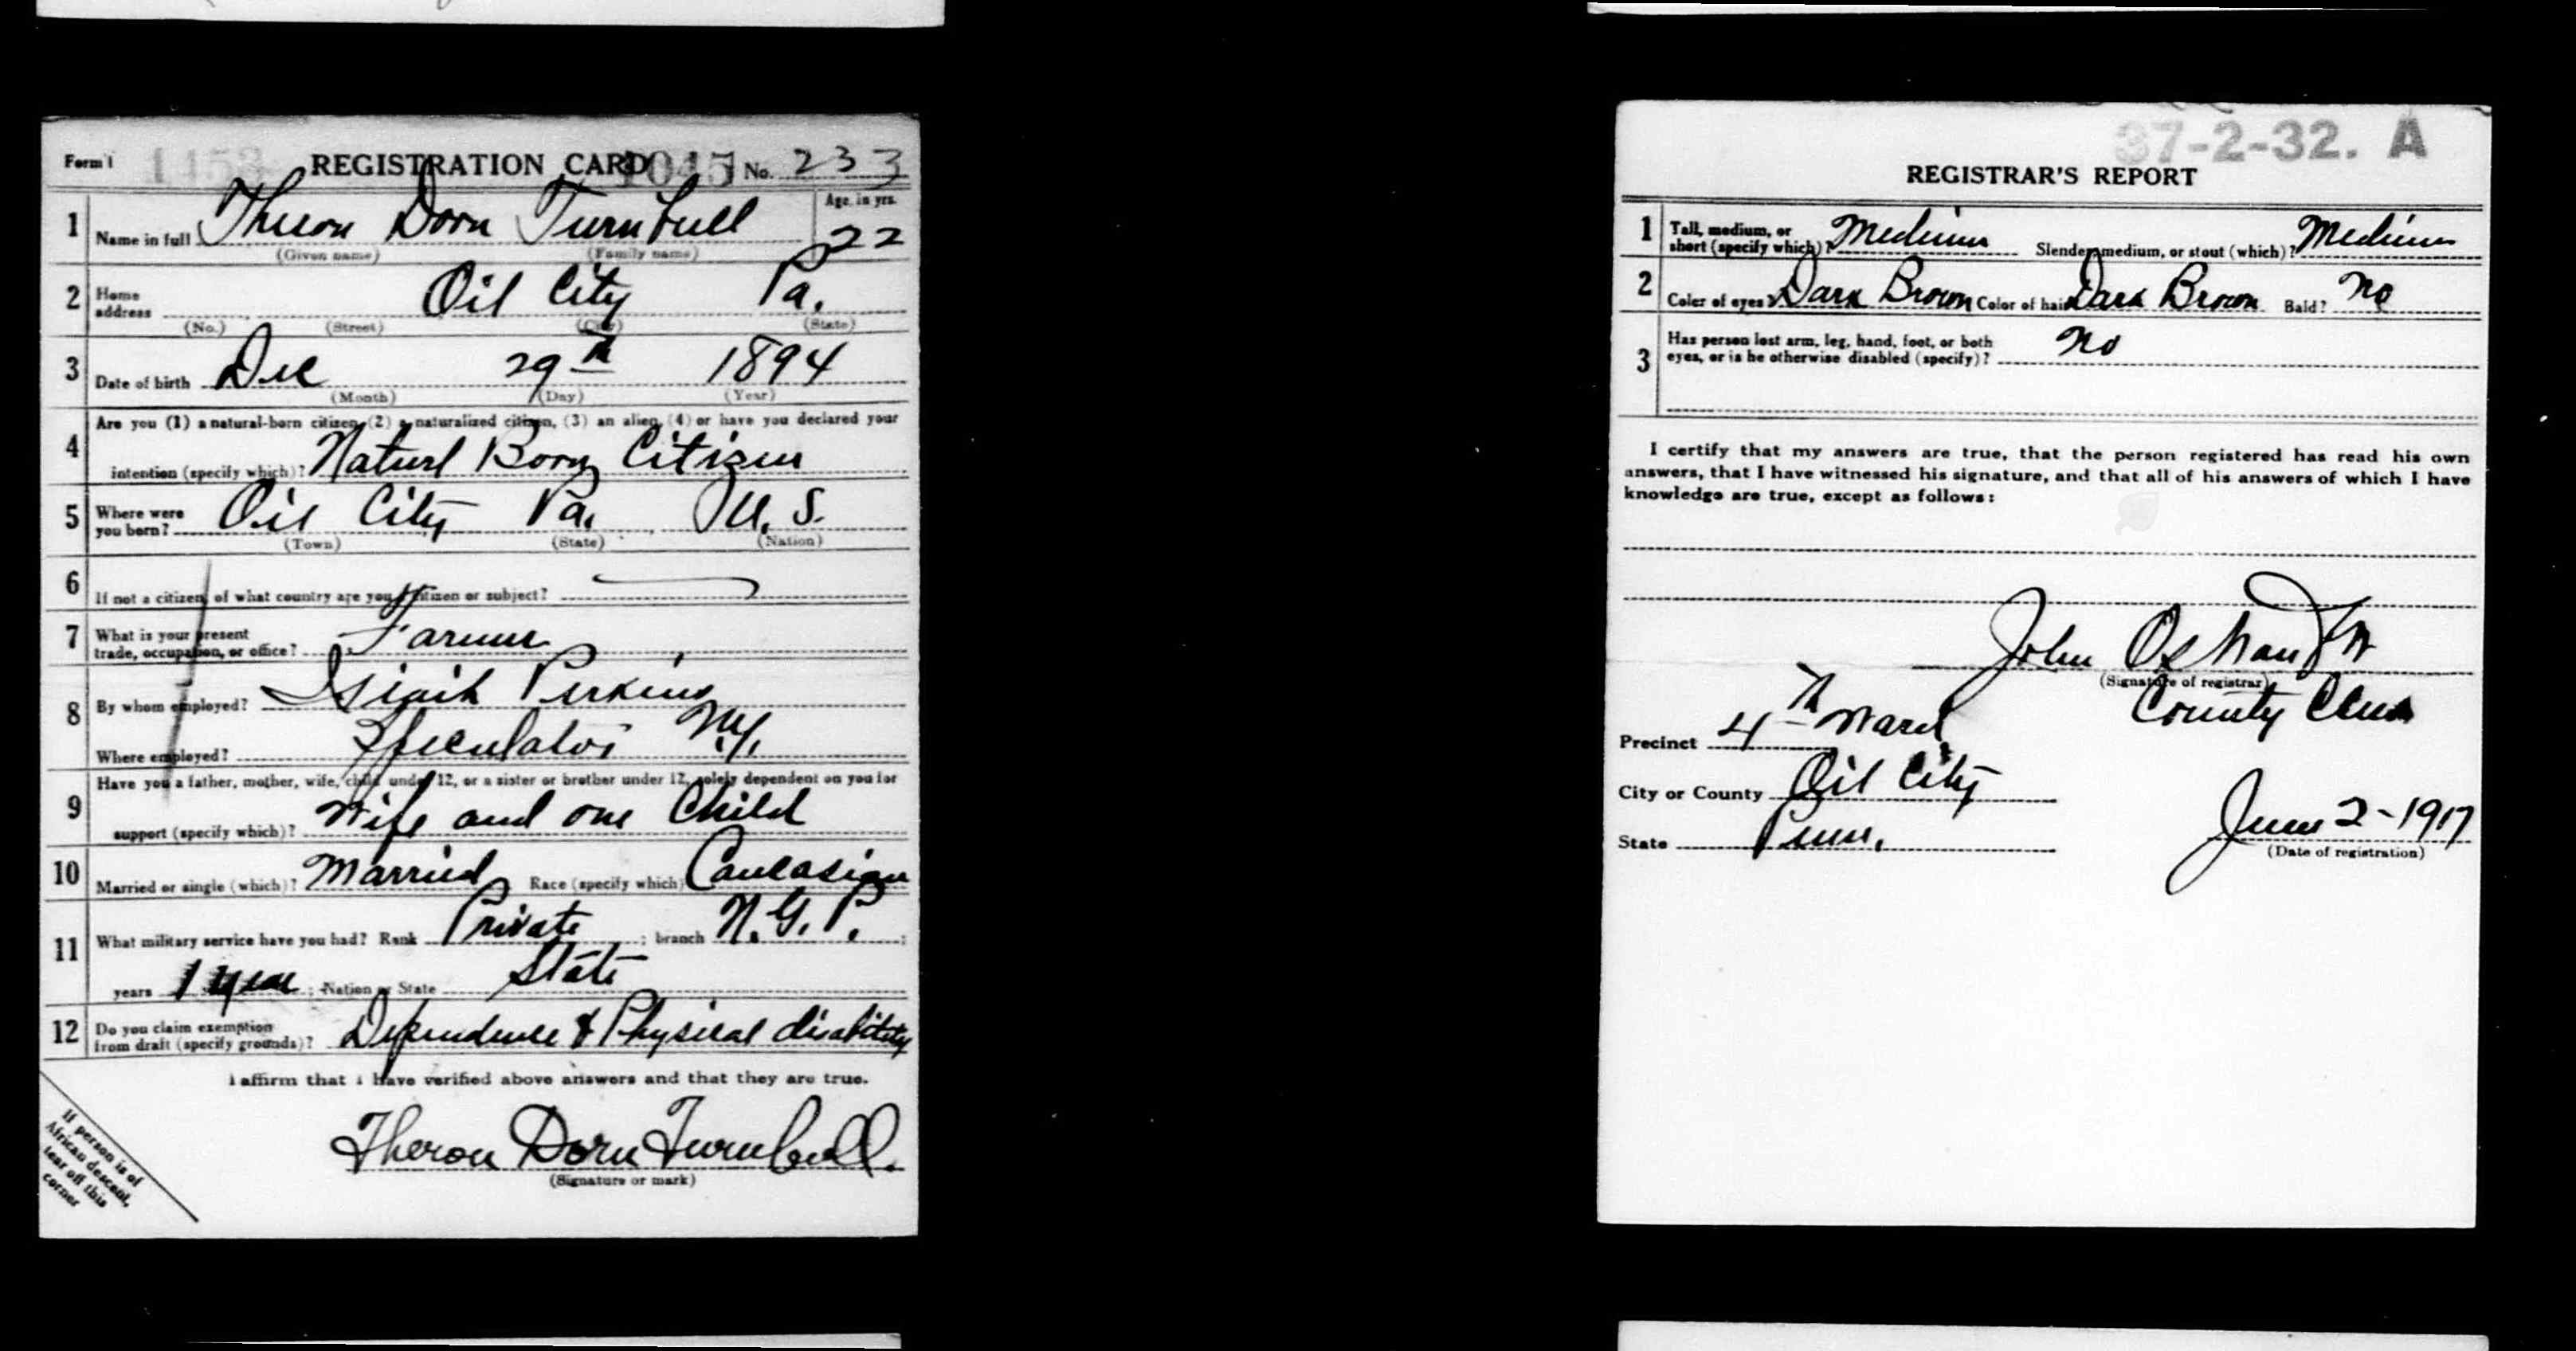 Form 1 1453 REGISTRATION CARD 1045 No. 233
1 Name in full Theron Dorn Turnbull Age, in yrs. 22
(Given name) (Family name)
2 Home address Oil City Pa.
(No.) (Street) (City) (State)
3 Date of birth Dec 29th 1894
(Month) (Day) (Year)
4 Are you (1) a natural-born citizen, (2) a naturalized citizen, (3) an alien, (4) or have you declared your
intention (specify which)? Naturl Born Citizen
5 Where were you born? Oil City Pa. U. S.
(Town) (State) (Nation)
6 If not a citizen, of what country are you a citizen or subject?
7 What is your present trade, occupation, or office? Farmer
8 By whom employed? Isiaih Perkins
Where employed? Speculator N.Y.
9 Have you a father, mother, wife, child under 12, or a sister or brother under 12, solely dependent on you for
support (specify which)? Wife and one Child
10 Married or single (which)? Married Race (specify which) Caucasian
11 What military service have you had? Rank Private ; branch N.G.P. ;
years 1 year ; Nation or State State
12 Do you claim exemption from draft (specify grounds)? Dependence & Physical disability
I affirm that I have verified above answers and that they are true.
Theron Dorn Turnbull.
(Signature or mark)
If person is of
African descent,
tear off this
corner
37-2-32. A
REGISTRAR'S REPORT
1 Tall, medium, or short (specify which)? Medium Slender, medium, or stout (which)? Medium
2 Color of eyes? Dark Brown Color of hair Dark Brown Bald? No
3 Has person lost arm, leg, hand, foot, or both
eyes, or is he otherwise disabled (specify)? No
I certify that my answers are true, that the person registered has read his own
answers, that I have witnessed his signature, and that all of his answers of which I have
knowledge are true, except as follows:
John
(Signature of registrar)
County Clerk
Precinct 4th Ward
City or County Oil City
State Penn.
June 2-1917
(Date of registration)